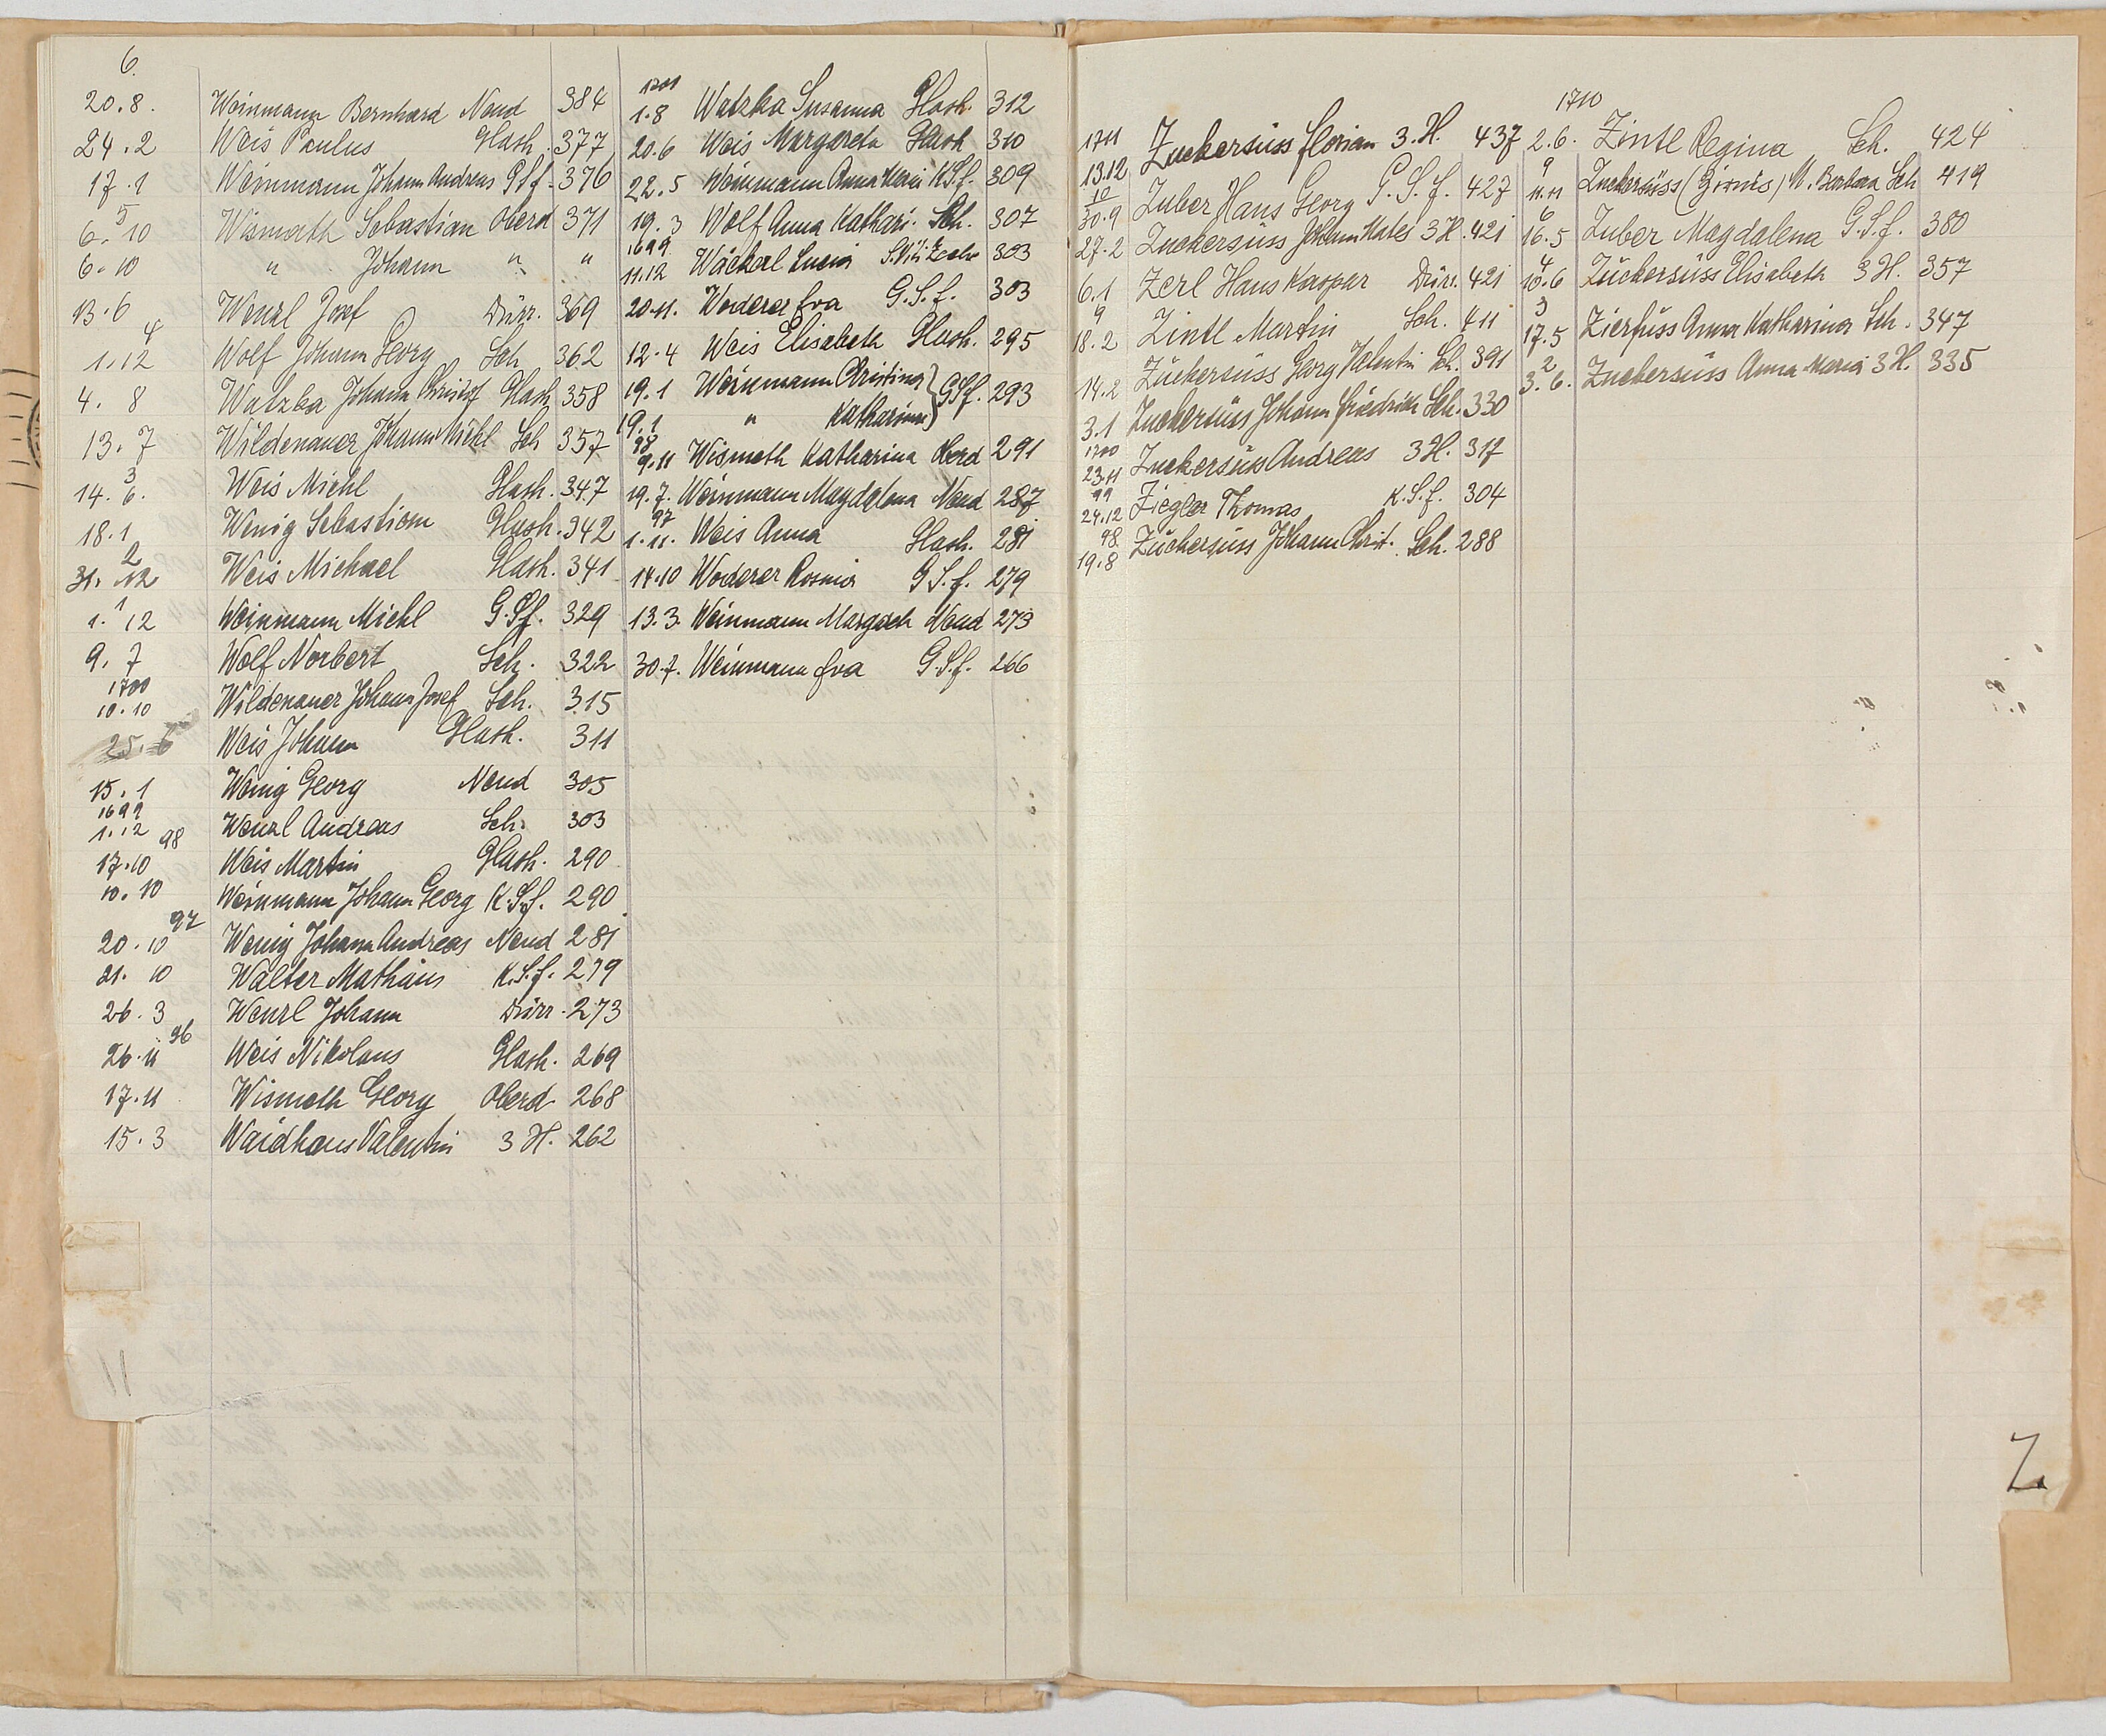 6.
20.8. Weinmann Bernhard Neud 384
24.2 Weis Paulus Glash. 377
17.1 Weinmann Johann Andreas GSf. 376
5
6.10 Wismath Sebastian Oberd 371
6.10 " Johann " "
13.6 Wenzl Josef Dürr. 369
4
1.12 Wolf Johann Georg Sch 362
4.8 Watzka Johann Christof Glash 358
13.7 Wildenauer Johann Michl Sch 357
3
14.6. Weis Michl Glash. 347
18.1 Wenig Sebastian Glash. 342
2
31.12 Weis Michael Glash. 341
1
1.12 Weinmann Michl G.Sf. 329
9.7 Wolf Norbert Sch. 322
1700
10.10 Wildenauer Johann Josef Sch. 315
25.6 Weis Johann Glash. 311
15.1 Wenig Georg Neud 305
1699
1.12 Wenzl Andreas Sch. 303
98
17.10 Weis Martin Glash. 290
10.10 Weinmann Johann Georg K.S.f. 290
97
20.10 Wenig Johann Andreas Neud 281
21.10 Walter Mathäus K.S.f. 279
26.3 Wenzl Johann Dürr. 273
96
26.11 Weis Nikolaus Glash. 269
17.11 Wismeth Georg Oberd 268
15.3 Waidhaus Valentin 3 H. 262
1701
1.8 Watzka Susanna Glash. 312
20.6 Weis Margareta Glash 310
22.5 Weinmann Anna Maria K.S.f. 309
19.3 Wolf Anna Kathari. Sch. 307
1699
11.12 Wächerl Lucia 303
20.11. Woderer Eva G.S.f. 303
12.4 Weis Elisabeth Glash. 295
19.1 Weinmann Christina } GSf. 293
19.1 " Katharina
98
9.11 Wismeth Katharina Oberd 291
19.7. Weinmann Magdalena Neud 287
97
1.11. Weis Anna Glash. 281
14.10 Woderer Rosina G S.f. 279
13.3. Weinmann Margareth Neud 273
30.7. Weinmann Eva G.S.f. 266
1711
13.12 Zuckersüss Florian 3.H. 437
10
30.9 Zuber Hans Georg G.S.f. 427
27.2 Zuckersüss Johann Mates 3 H. 421
6.1 Zerl Hans Kaspar Dürr. 421
9
18.2 Zintl Martin Sch. 411
14.2 Zuckersüss Georg Valentin Sch. 391
3.1 Zuckersüss Johann Friedrich Sch. 330
1700
23.11 Zuckersüss Andreas 3 H. 317
99
24.12 Ziegler Thomas K.S.f. 304
98
19.8 Zuckersüss Johann Christ. Sch. 288
1710
2.6. Zintl Regina Sch. 424
9
11.11 Zuckersüss M. Barbara Sch 419
6
16.5 Zuber Magdalena G.S.f. 380
4
10.6 Zuckersüss Elisabeth 3 H. 357
3
17.5 Zierfuss Anna Katharina Sch. 347
2
3.6. Zuckersüss Anna Maria 3 H. 335
Z